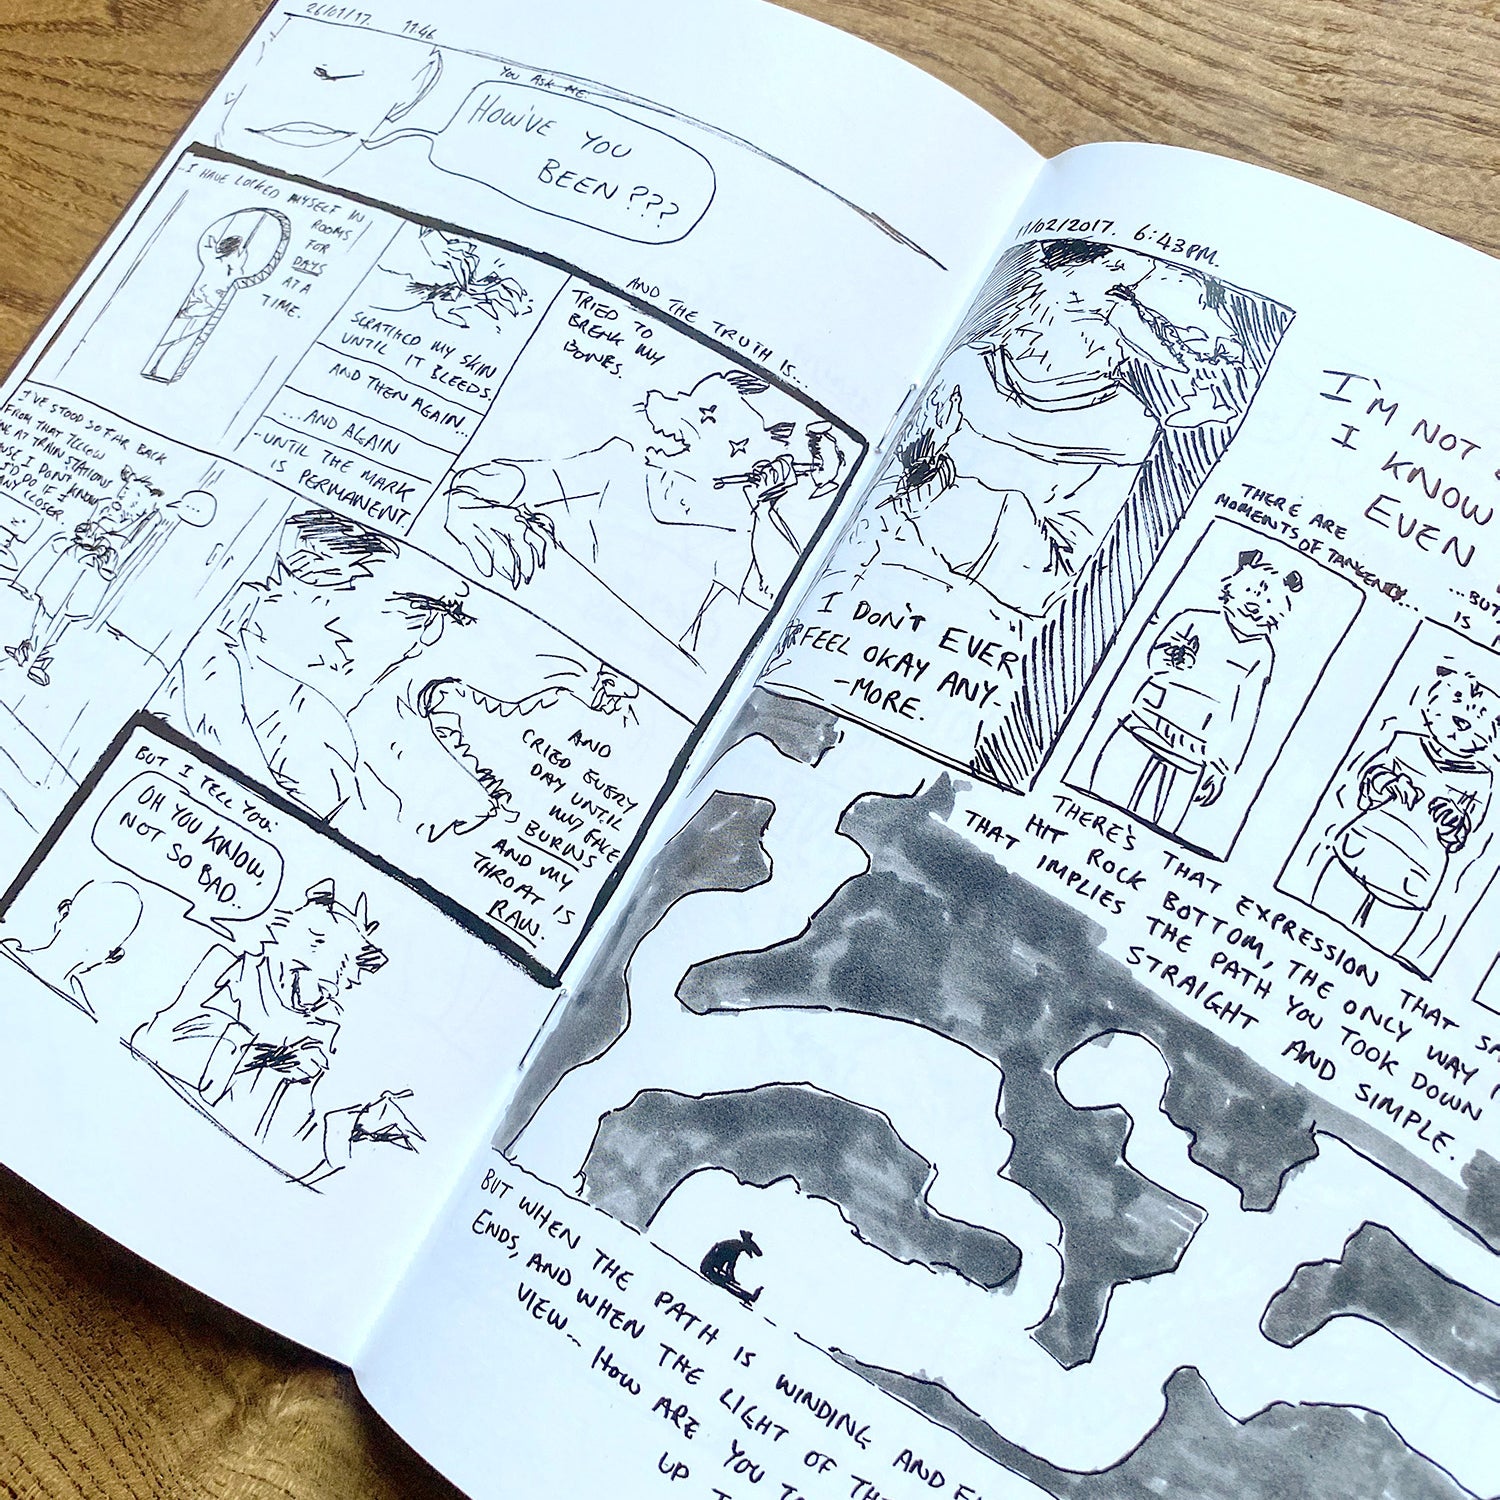 26/01/17. 11:46
YOU ASK ME.
HOW'VE YOU
BEEN???
AND THE TRUTH IS...
..I HAVE LOCKED MYSELF IN
ROOMS
FOR
DAYS
AT A
TIME.
SCRATCHED MY SKIN
UNTIL IT BLEEDS.
AND THEN AGAIN...
...AND AGAIN
-UNTIL THE MARK
IS PERMANENT.
TRIED TO
BREAK MY
BONES.
I'VE STOOD SO FAR BACK
FROM THAT YELLOW
AT TRAIN STATIONS
I DON'T KNOW
I'D DO IF I
ANY CLOSER.
...
AND
CRIED EVERY
DAY UNTIL
MY FACE
BURNS
AND MY
THROAT IS
RAW.
BUT I TELL YOU:
OH YOU KNOW,
NOT SO BAD..
/02/2017. 6:43PM.
I DON'T EVER
FEEL OKAY ANY-
-MORE.
I'M NOT
I KNOW
EVEN
THERE ARE
MOMENTS OF TANGENCY...
...BUT
IS
THERE'S THAT EXPRESSION THAT SA
HIT ROCK BOTTOM, THE ONLY WAY
THAT IMPLIES THE PATH YOU TOOK DOWN
STRAIGHT AND SIMPLE.
BUT WHEN THE PATH IS WINDING AND
ENDS, AND WHEN THE LIGHT OF
VIEW- HOW ARE YOU
UP